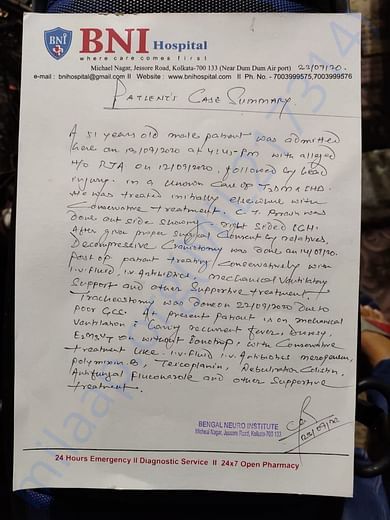 BNI
BNI Hospital
where care comes first
Michael Nagar, Jessore Road, Kolkata-700 133 (Near Dum Dum Air port) 22/09/20.
e-mail : bnihospital@gmail.com II Website : www.bnihospital.com II Ph. No. - 7003999575,7003999576
PATIENT'S CASE SUMMARY.
A 51 years old male patient was admitted
here on 12/09/2020 at 4:45 pm with alleged
H/o RTA on 12/09/2020, followed by head
injury. in a known case of T2DM & CHD.
He was treated initially elsewhere with
Conservative treatment. C.T. Brain was
done out side showing - Right sided ICH.
After given proper surgical consent by relatives,
Decompressive Craniotomy was done on 14/09/20.
Post op patient treating conservatively with
i.v. fluid, i.v. Antibiotics, mechanical ventilatory
support and other supportive treatment.
Tracheostomy was done on 22/09/2020 due to
poor GCS. At present patient is on mechanical
ventilation & having recurrent fever,
on without Ionotrop, with Conservative
treatment like i.v. fluid i.v. Antibiotics meropenem,
polymixin B, Teicoplanin, Colistin,
Antifungal fluconazole and other supportive
treatment.
BENGAL NEURO INSTITUTE
Micheal Nagar, Jessore Road, Kolkata-700 133
24 Hours Emergency II Diagnostic Service II 24x7 Open Pharmacy